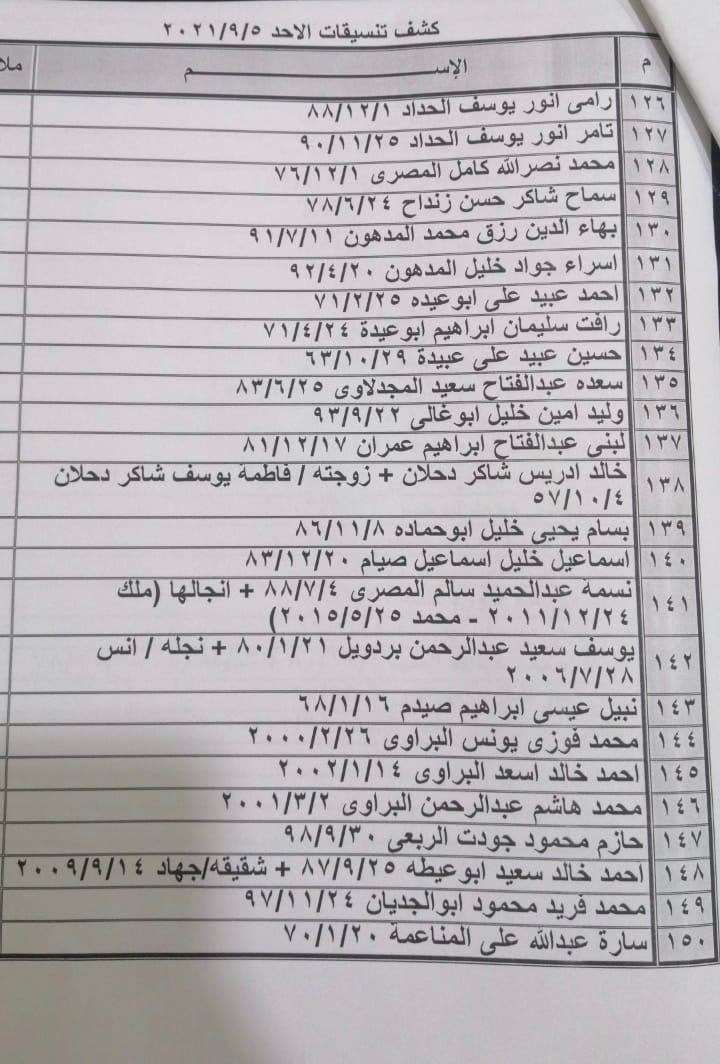 كشف تنسيقات الاحد ٢٠٢١/٩/٥
م الإســـــــــم ملا
١٢٦ رامى انور يوسف الحداد ٨٨/١٢/١
١٢٧ تامر انور يوسف الحداد ٩٠/١١/٢٥
١٢٨ محمد نصرالله كامل المصرى ٧٦/١٢/١
١٢٩ سماح شاكر حسن زنداح ٧٨/٦/٢٤
١٣٠ بهاء الدين رزق محمد المدهون ٩١/٧/١١
١٣١ اسراء جواد خليل المدهون ٩٢/٤/٢٠
١٣٢ احمد عبيد على ابوعيده ٧١/٢/٢٥
١٣٣ رافت سليمان ابراهيم ابوعيدة ٧١/٤/٢٤
١٣٤ حسين عبيد على عبيدة ٦٣/١٠/٢٩
١٣٥ سعده عبدالفتاح سعيد المجدلاوى ٨٣/٦/٢٥
١٣٦ وليد امين خليل ابوغالى ٩٣/٩/٢٢
١٣٧ لبنى عبدالفتاح ابراهيم عمران ٨١/١٢/١٧
١٣٨ خالد ادريس شاكر دحلان + زوجته / فاطمة يوسف شاكر دحلان
٥٧/١٠/٤
١٣٩ بسام يحيى خليل ابوحماده ٨٦/١١/٨
١٤٠ اسماعيل خليل اسماعيل صيام ٨٣/١٢/٢٠
١٤١ نسمة عبدالحميد سالم المصرى ٨٨/٧/٤ + انجالها (ملك
٢٠١١/١٢/٢٤ - محمد ٢٠١٥/٥/٢٥)
١٤٢ يوسف سعيد عبدالرحمن بردويل ٨٠/١/٢١ + نجله / انس
٢٠٠٦/٧/٢٨
١٤٣ نبيل عيسى ابراهيم صيدم ٦٨/١/١٦
١٤٤ محمد فوزى يونس البراوى ٢٠٠٠/٢/٢٦
١٤٥ احمد خالد اسعد البراوى ٢٠٠٢/١/١٤
١٤٦ محمد هاشم عبدالرحمن البراوى ٢٠٠١/٣/٢
١٤٧ حازم محمود جودت الربعى ٩٨/٩/٣٠
١٤٨ احمد خالد سعيد ابوعيطه ٨٧/٩/٢٥ + شقيقه/جهاد ٢٠٠٩/٩/١٤
١٤٩ محمد فريد محمود ابوالجديان ٩٧/١١/٢٤
١٥٠ سارة عبدالله على المناعمة ٧٠/١/٢٠